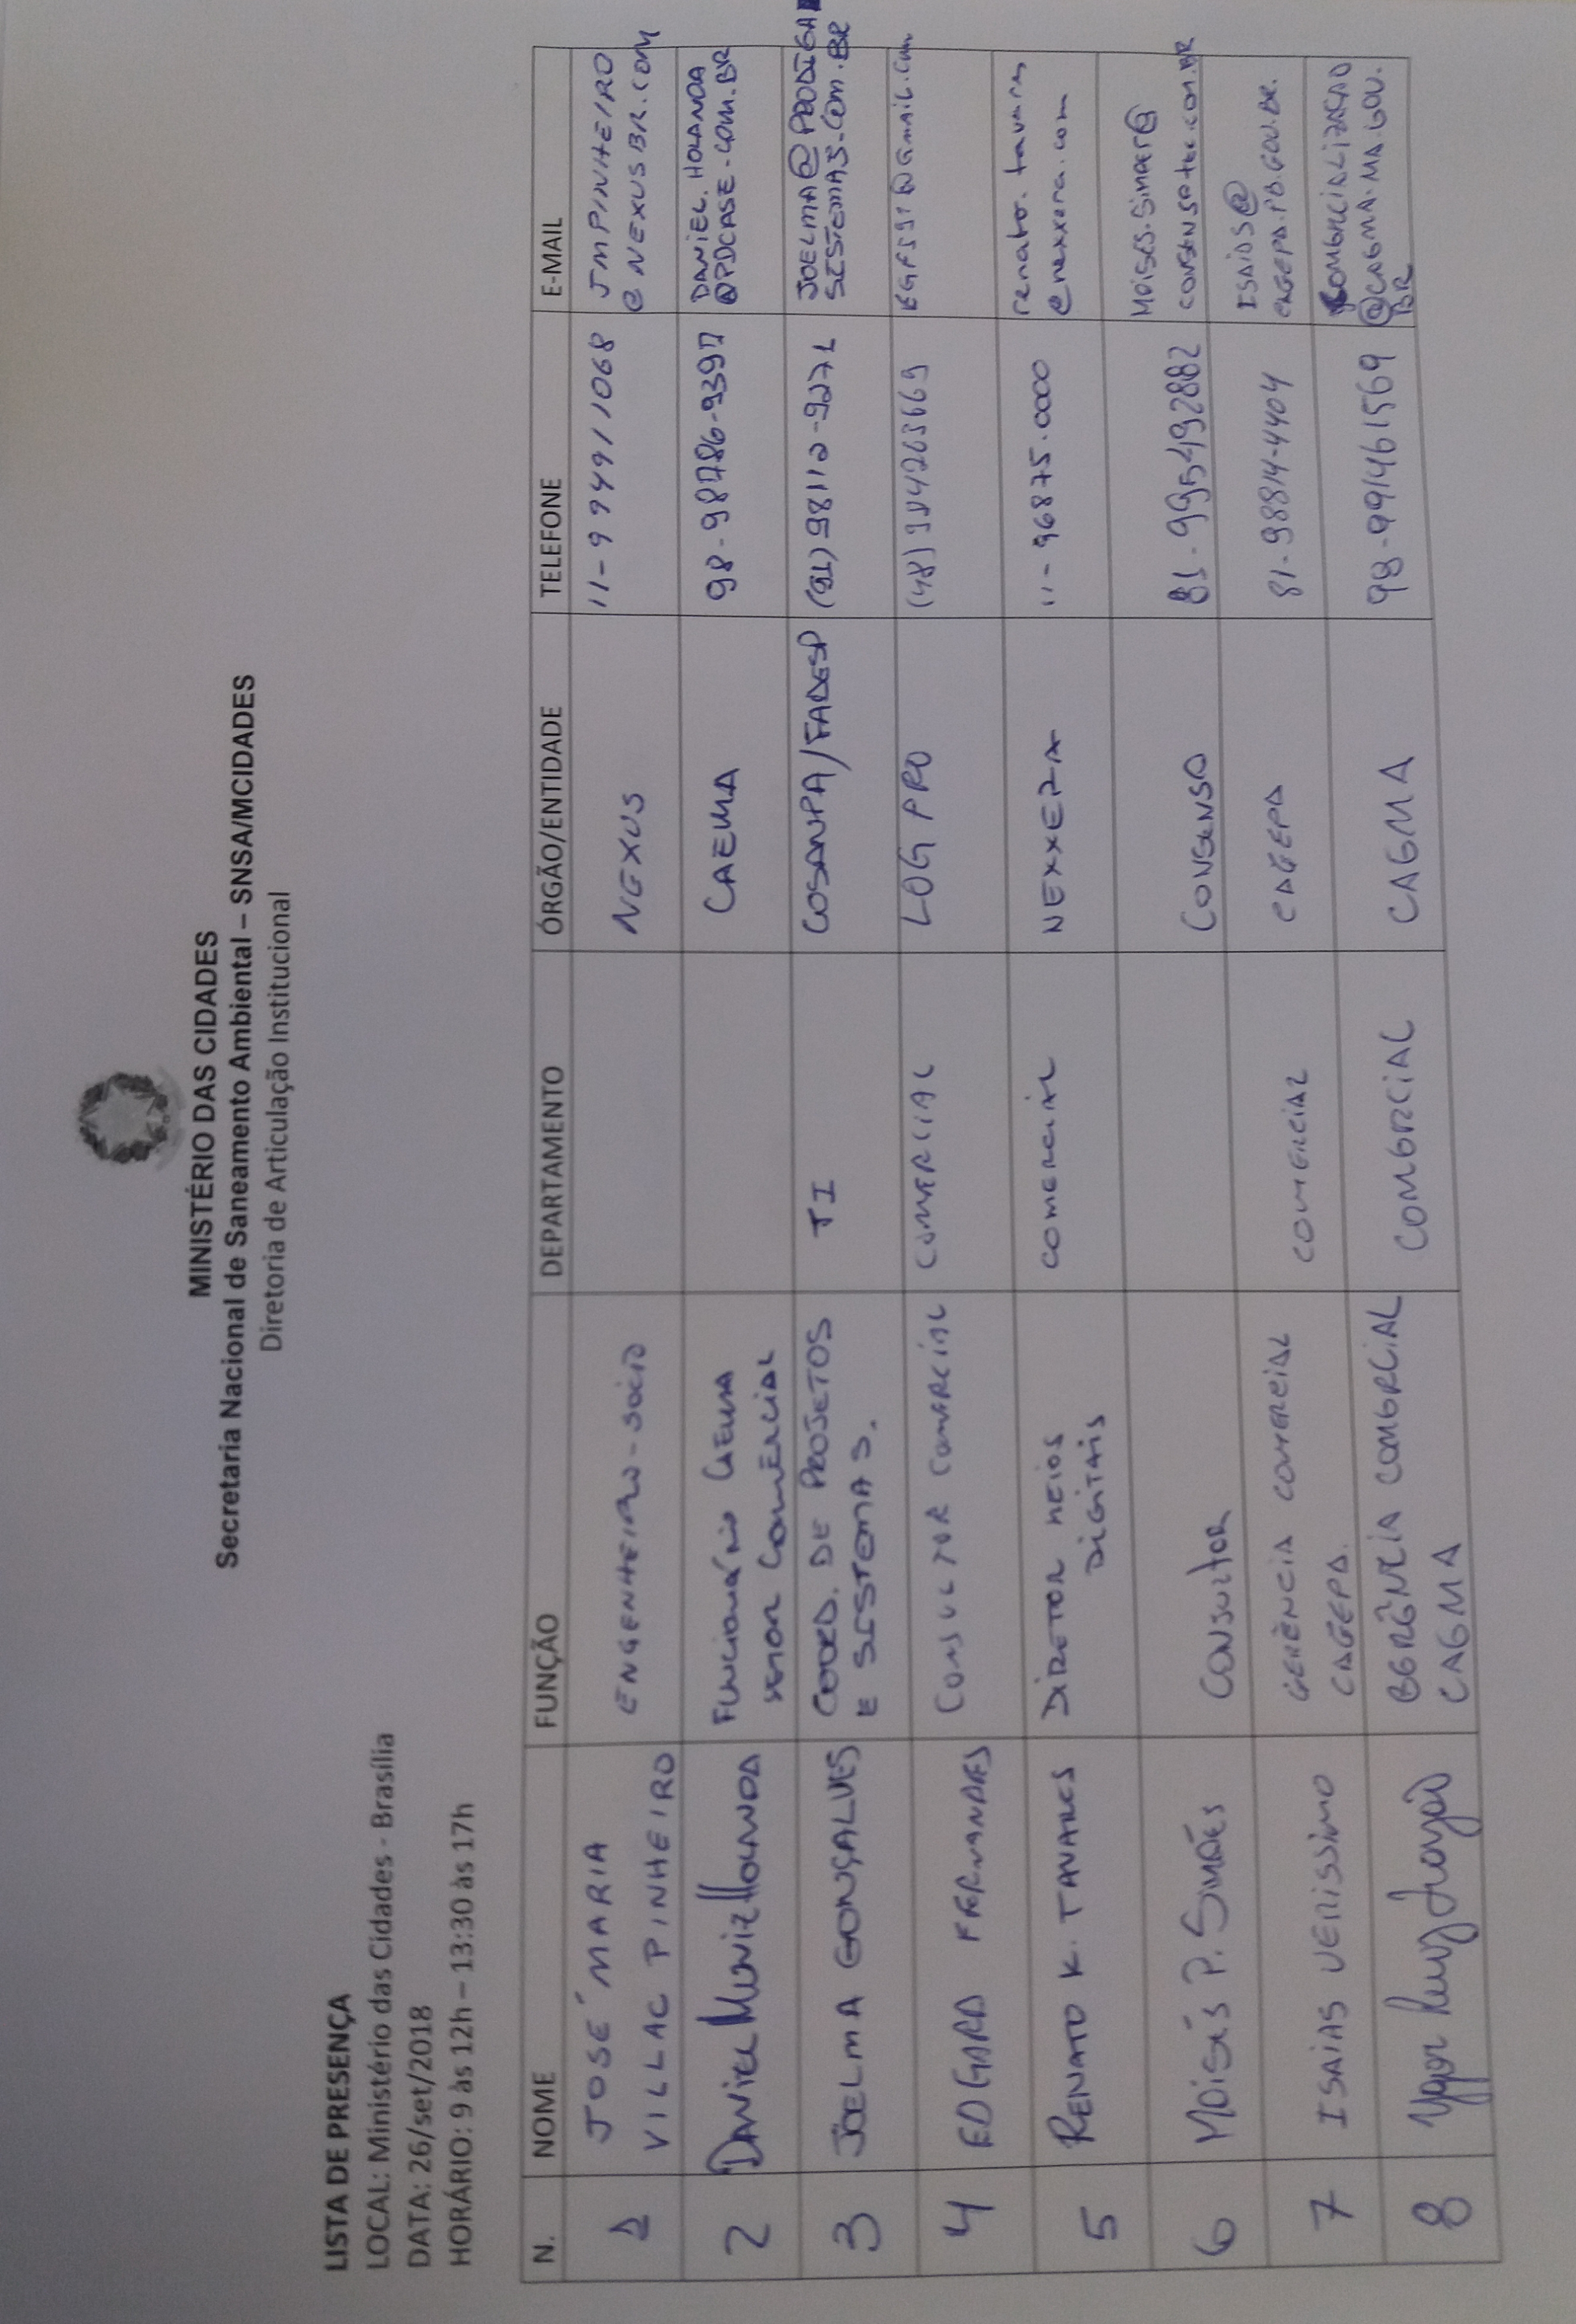 MINISTÉRIO DAS CIDADES
Secretaria Nacional de Saneamento Ambiental – SNSA/MCIDADES
Diretoria de Articulação Institucional
LISTA DE PRESENÇA
LOCAL: Ministério das Cidades - Brasília
DATA: 26/set/2018
HORÁRIO: 9 às 12h – 13:30 às 17h
N. NOME FUNÇÃO DEPARTAMENTO ÓRGÃO/ENTIDADE TELEFONE E-MAIL
1 JOSÉ MARIA VILLAC PINHEIRO ENGENHEIRO-SÓCIO NEXUS 11-9994911068 JMPINHEIRO @NEXUSBR.COM
2 DANIEL MUNIZ HOLANDA FUNCIONÁRIO CAEMA SETOR COMERCIAL CAEMA DANIEL.HOLANDA @PDCASE.COM.BR
3 JOELMA GONÇALVES COORD. DE PROJETOS E SISTEMAS. TI COSANPA/FADESP (91) 98112-9271 JOELMA@PRODIGA SISTEMAS.COM.BR
4 EDGARD FERNANDES CONSULTOR COMERCIAL COMERCIAL LOG PRO
5 RENATO K. TAVARES DIRETOR MEIOS DIGITAIS COMERCIAL NEXXERA 11-96875.0000 renato.tavares @nexxera.com
6 MOISÉS P. SIMÕES CONSULTOR CONSENSO 81-995492882 consensotec.com.BR
7 ISAIAS VERISSIMO GERÊNCIA COMERCIAL CAGEPA. COMERCIAL CAGEPA 81-98814-4404 ISAIAS@ CAGEPA.PB.GOV.BR.
8 COMERCIAL CAEMA COMERCIAL CAEMA 98-991461569 COMERCIALIZACAO @CAEMA.MA.GOV. BR